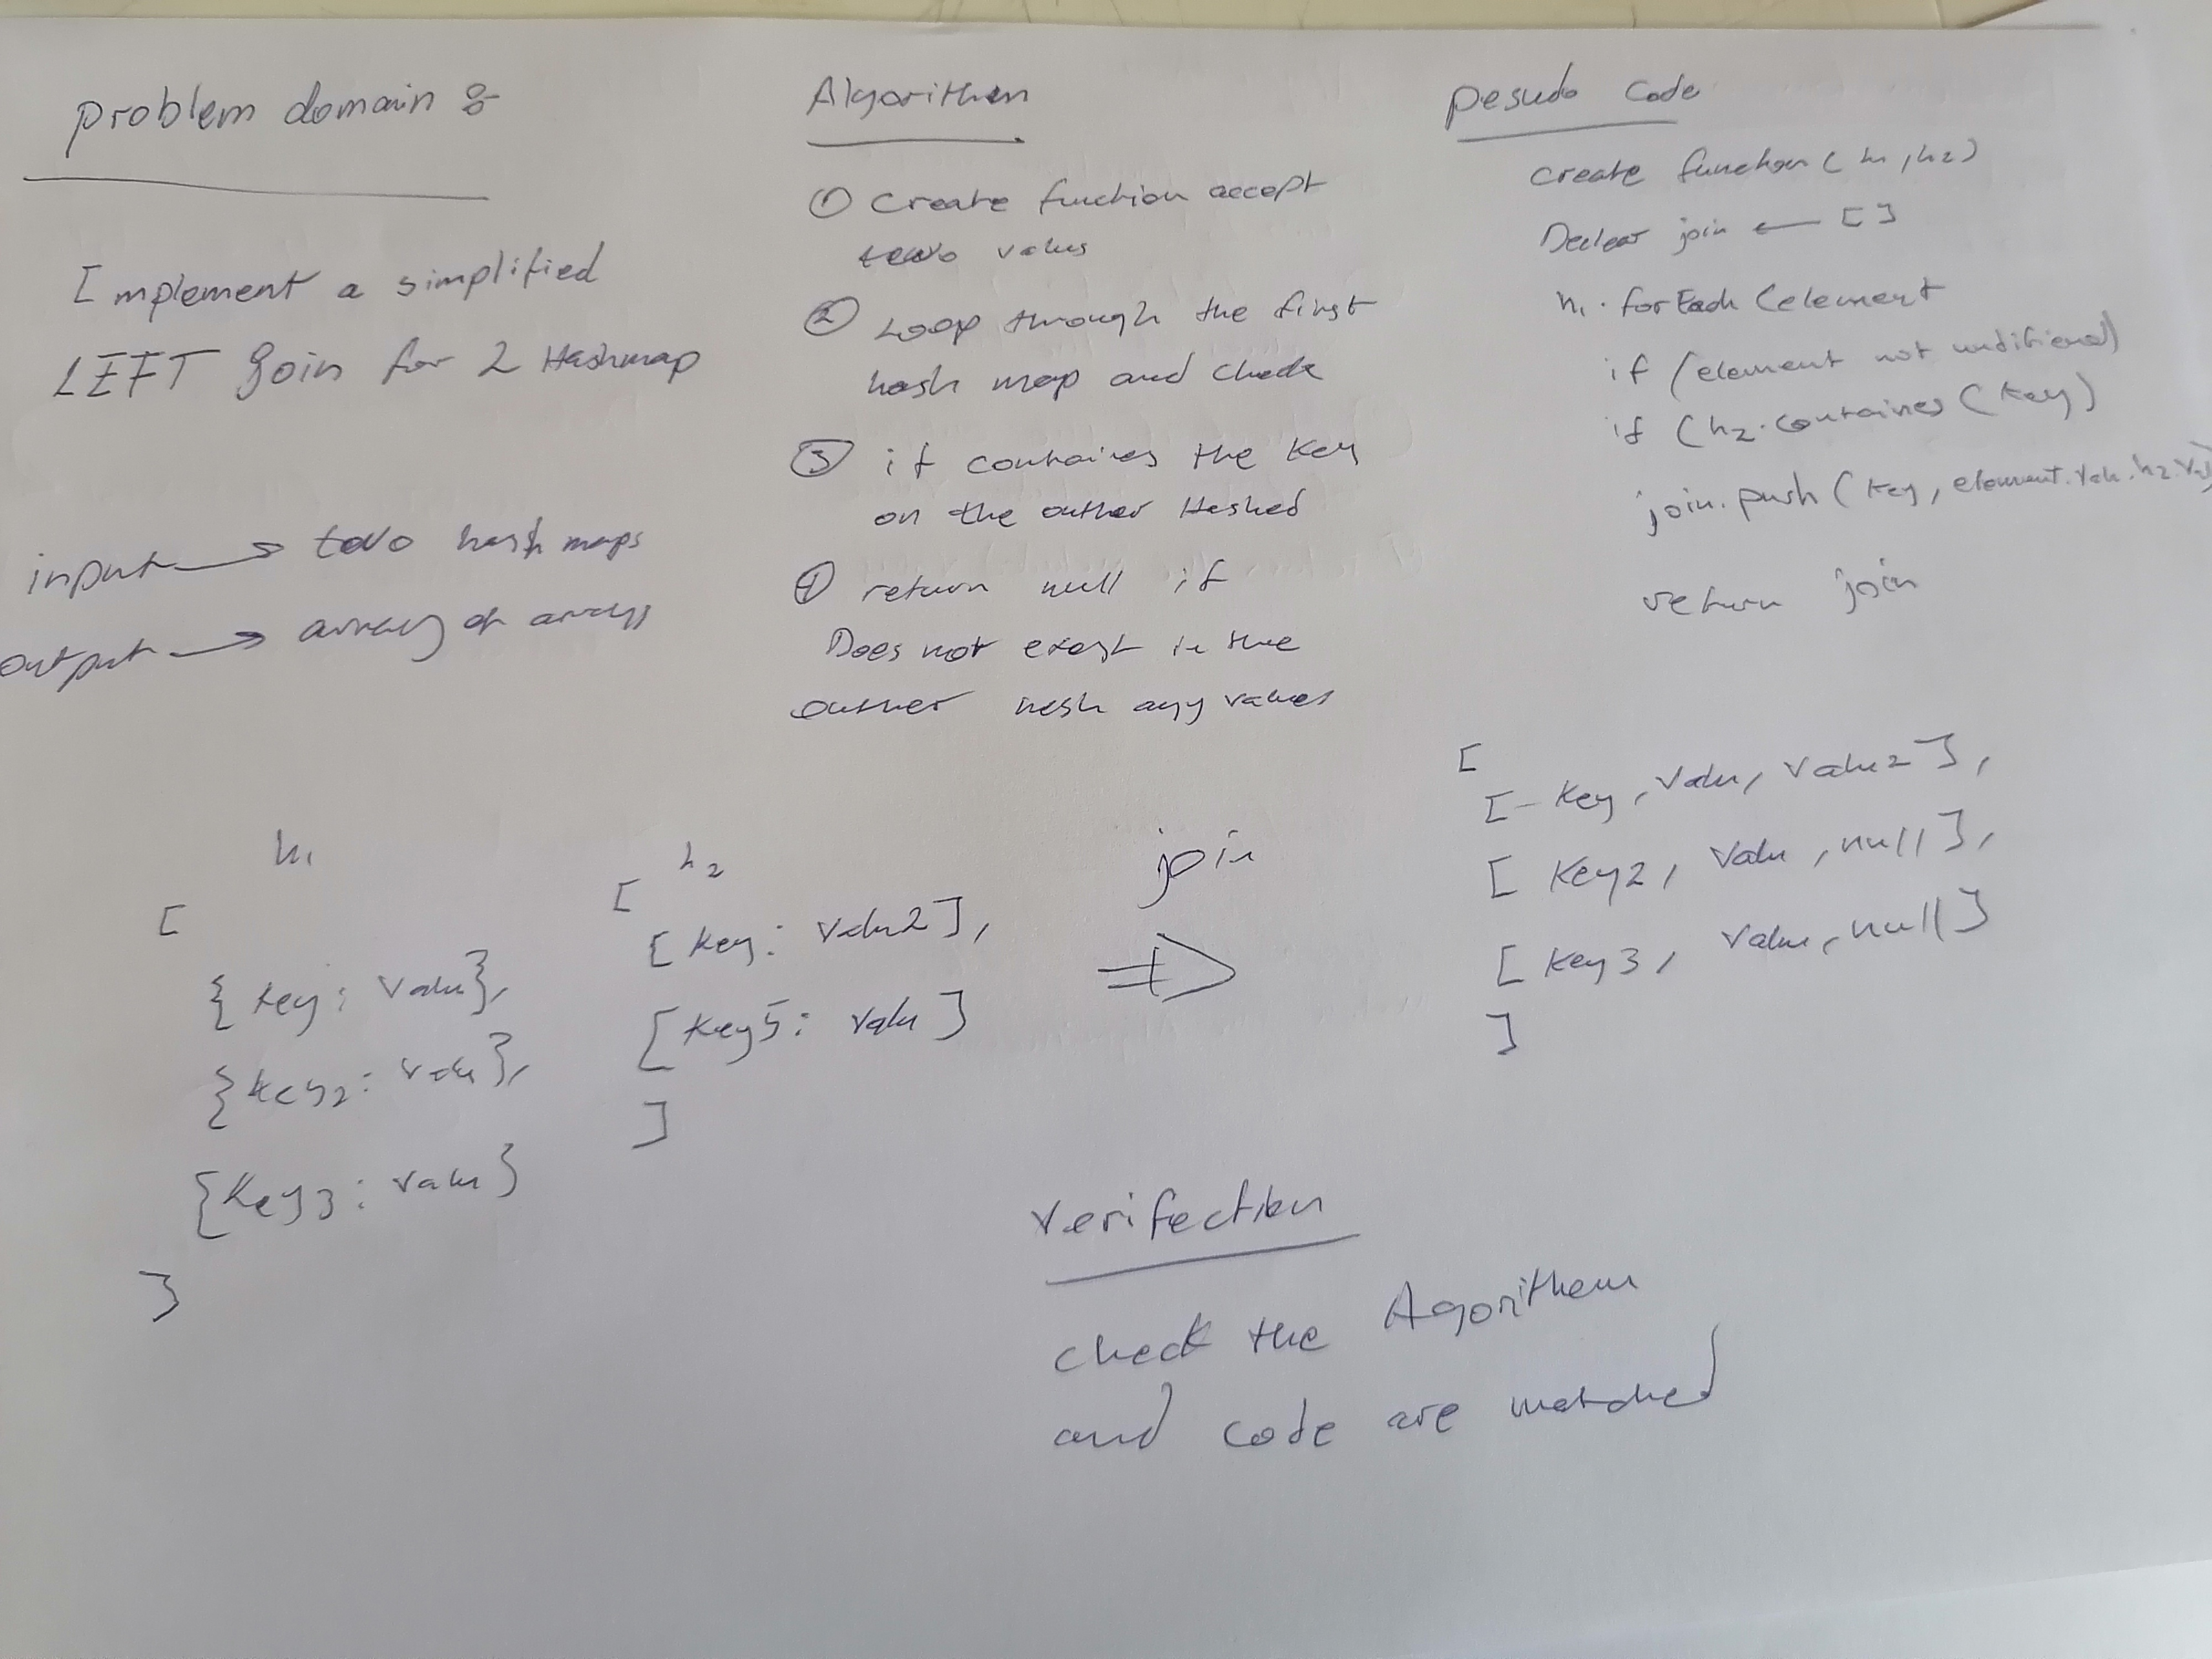 problem domain :-
Implement a simplified
LEFT Join for 2 Hashmap
input → two hash maps
output → array of arrays
Algorithem
① Create function accept
two values
② Loop through the first
hash map and check
③ if containes the key
on the outher Hashed
④ return null if
Does not exest in the
outher hesh any values
pesudo code
create function (h1, h2)
Declear join ← []
h1.forEach (element
if (element not undifiened)
if (h2.containes (key)
join.push (key, element.valu, h2.val)
return join
h1
[
{key: valu},
{key2: valu},
{key3: valu}
]
h2
[
[key: valu2],
[key5: valu]
]
join
⇒
[
[- key, valu, valu2],
[key2, valu, null],
[key3, valu, null]
]
Verifection
check the Agorithem
and code are matched